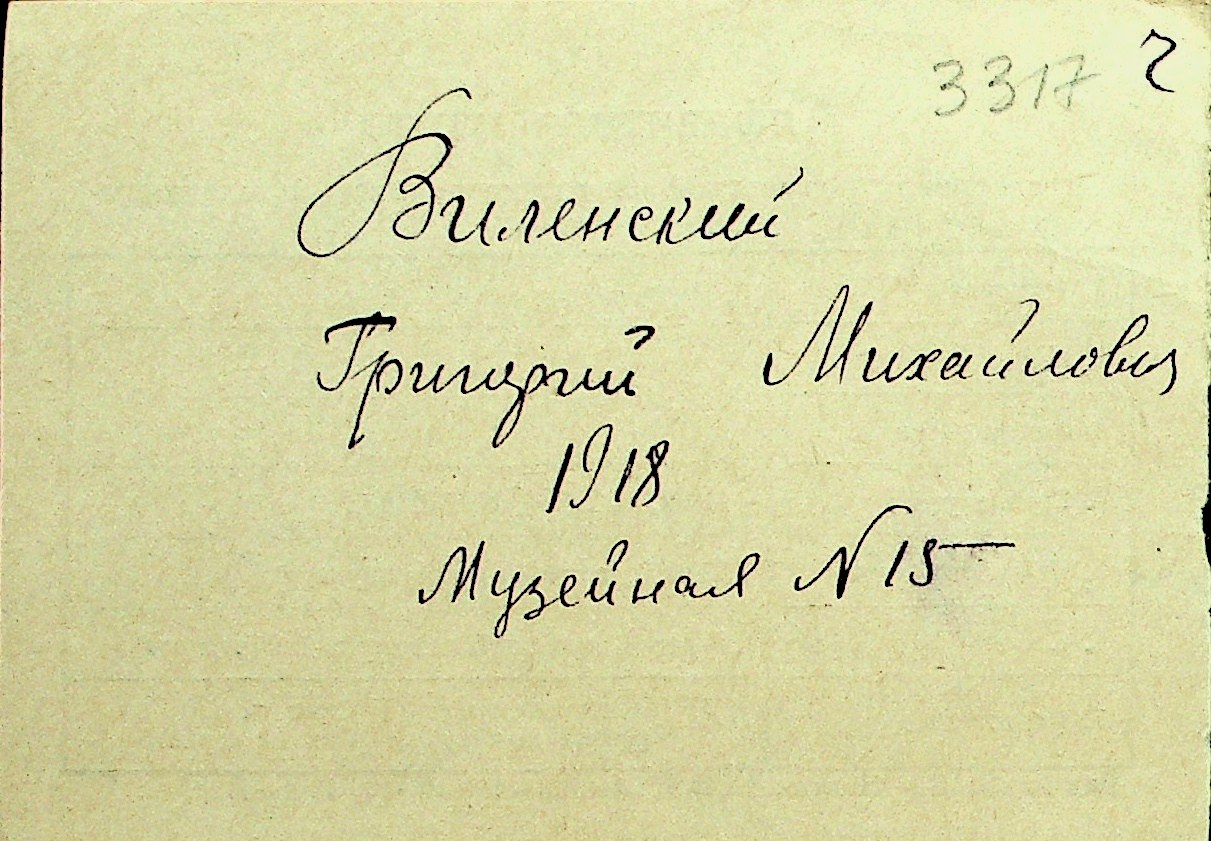 3317 ч
Виленский
Григорий Михайлович
1918
Музейная N 15